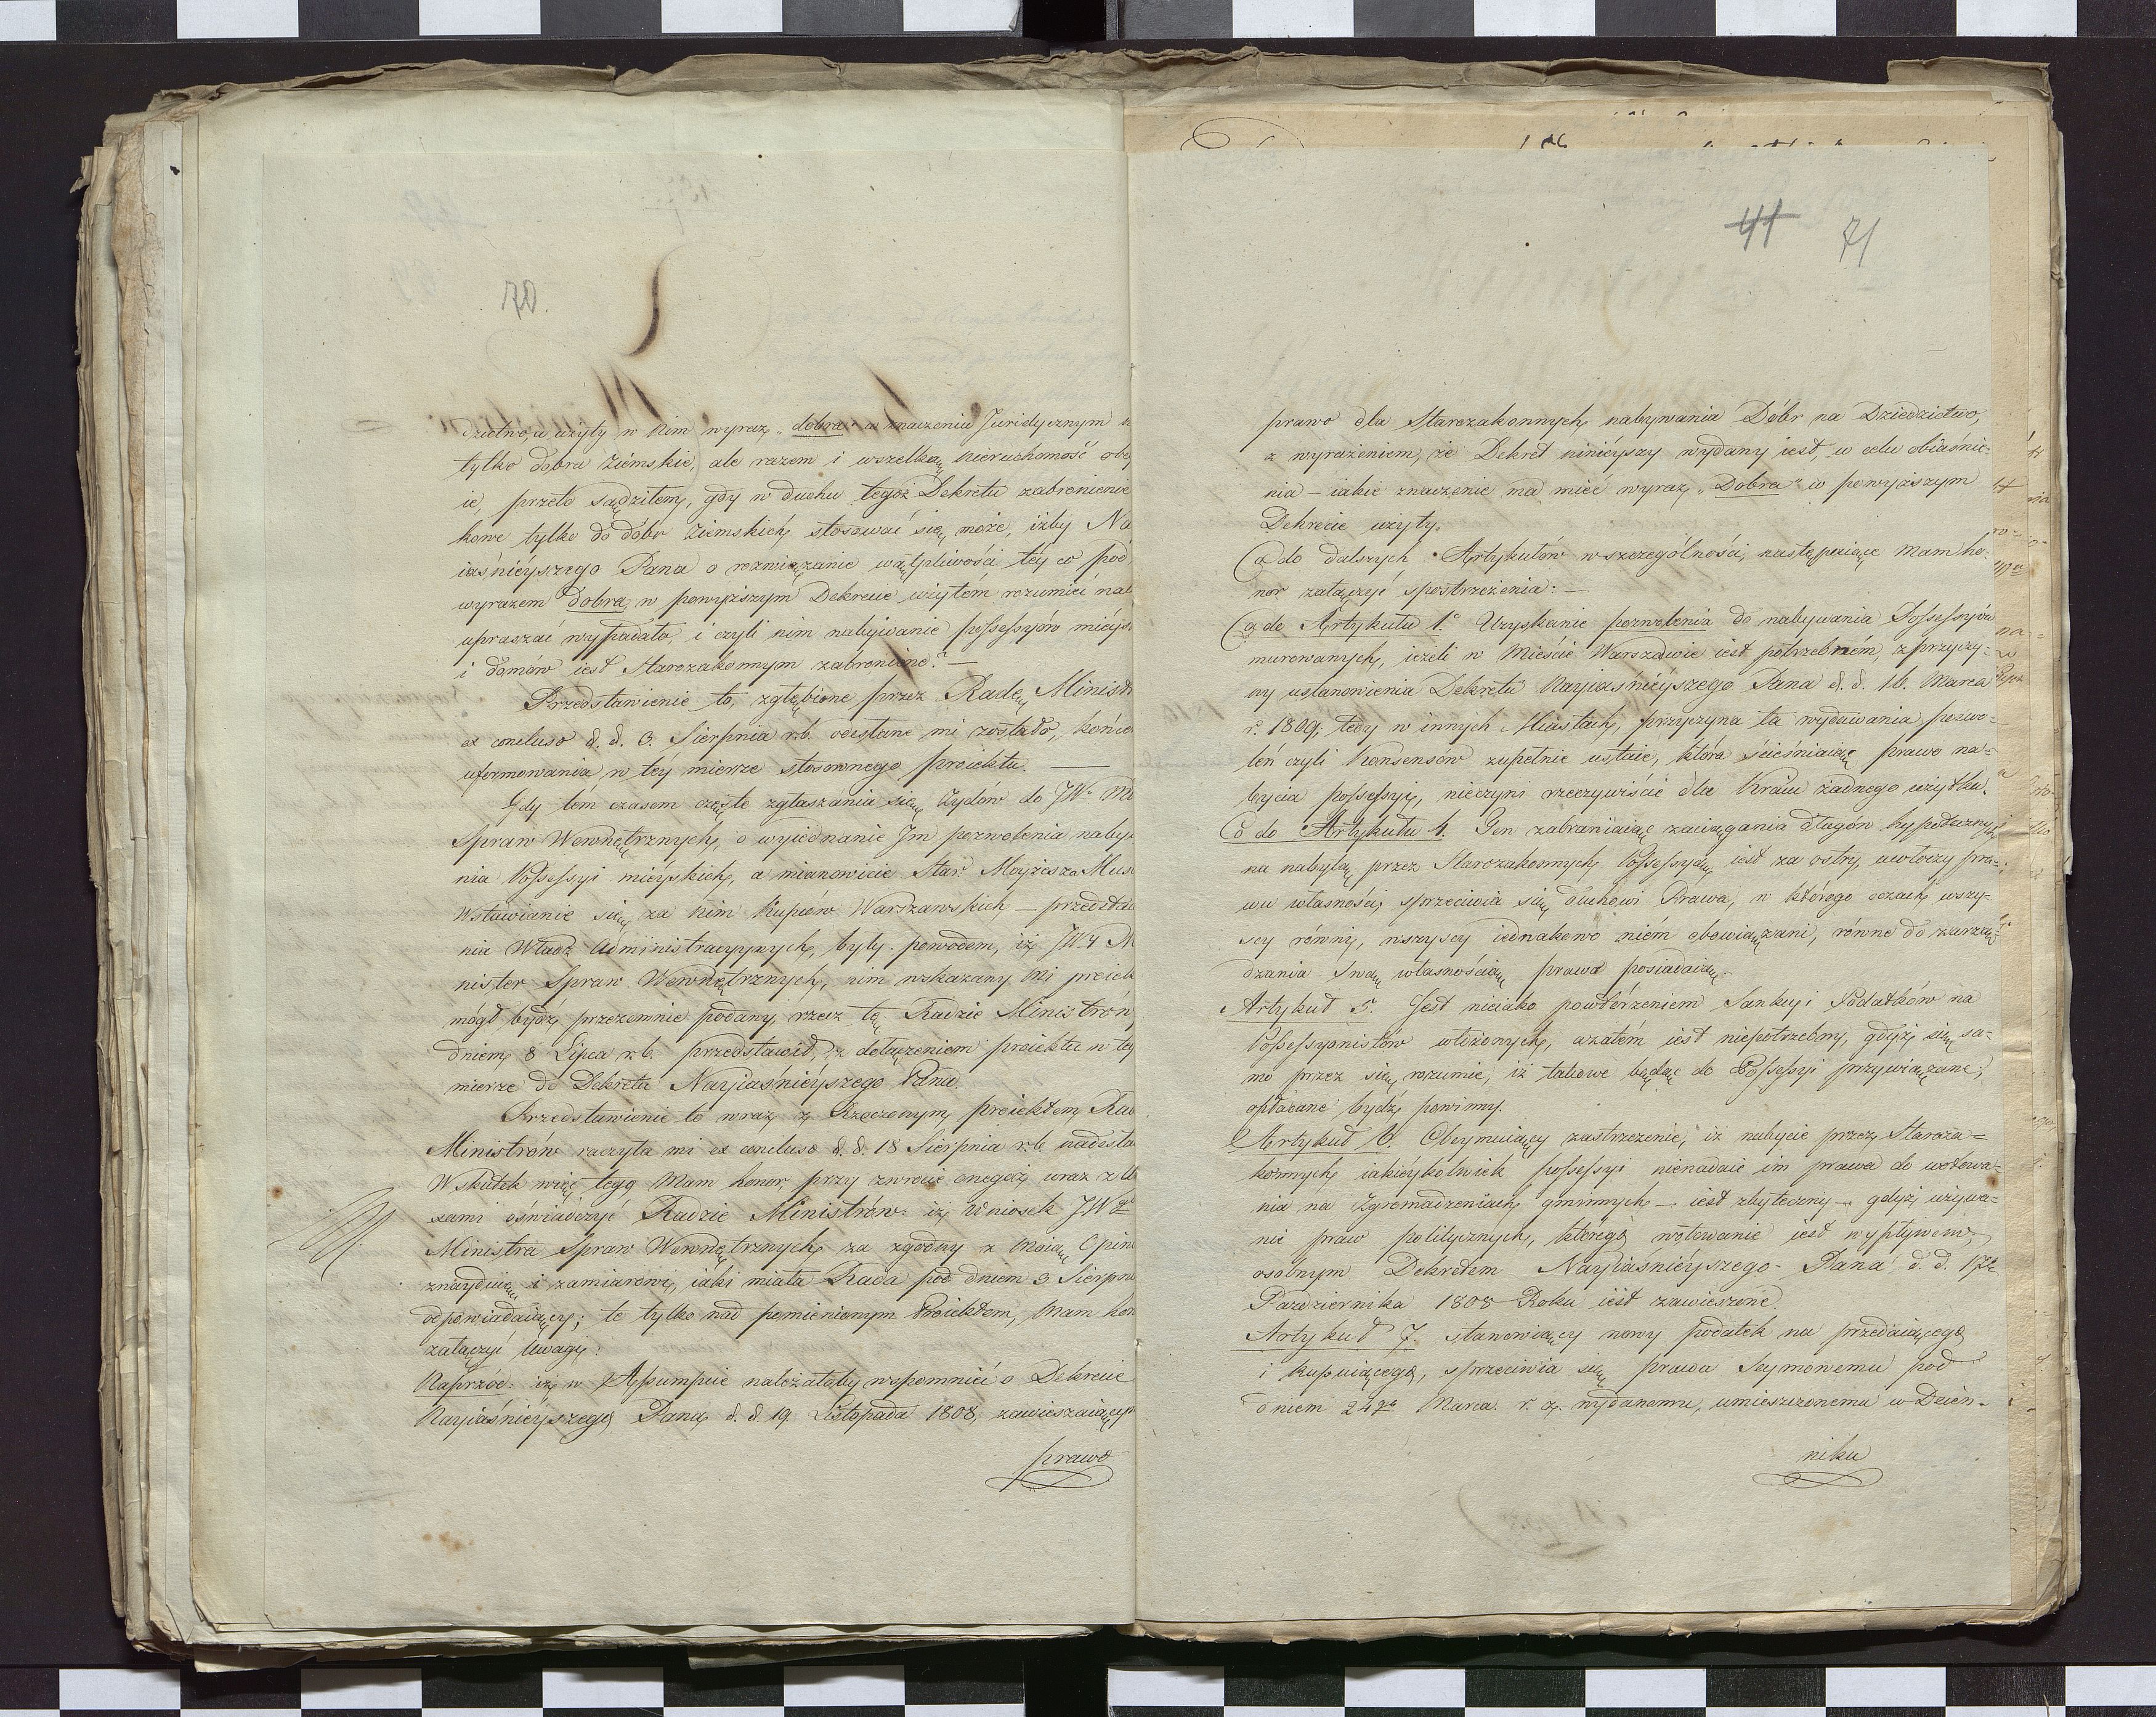 70.
dzictwo, a użyty w nim wyraz „dobra" w znaczeniu Juridycznym n
tylko dobra ziemskie, ale razem i wszelką nieruchomość obey
ie, przeto sądziłem, gdy w duchu tegoż Dekretu zabronienie
kowe tylko do dóbr ziemskich stosować się może, iżby Na
iaśnieyszego Pana o rozwiązanie wątpliwości tey co pod
wyrazem dobra, w powyższym Dekrecie użytém rozumieć nale
upraszać wypadało i czyli nim nabywanie possessyów mieysk
i domów iest Starozakonnym zabronione? —
Przedstawienie to, zgłębione przez Radę Ministr
ex concluso d. d. 3. Sierpnia r. b. odesłane mi zostało, końce
uformowania w tey mierze stosownego proiektu. —
Gdy tém czasem częste zgłaszania się Żydów do JWo Mi
Spraw Wewnętrznych, o wyiednanie Im pozwolenia naby
nia Possessyi mieyskich, a mianowicie Star. Moyżesza Mus
Wstawianie się za nim Kupców Warszawskich — przedsta
nia Władz Administracyynych, były powodem, iż JWy M
nister Spraw Wewnętrznych, nim wskazany mi proiek
mógł bydź przezemnie podany, rzecz tę Radzie Ministrów
dniem 8 Lipca r. b. przedstawił, z dołączeniem proiektu w tey
mierze do Dekretu Nayiaśnieyszego Pana.
Przedstawienie to wraz z Rzeczonym proiektem Rad
Ministrów raczyła mi ex concluso d. d. 18 Sierpnia r. b. nadesła
W skutek więc tego Mam honor, przy zwrocie onegoż wraz z
sami oświadczyć Radzie Ministrów: iż Wniosek JWgo
Ministra Spraw Wewnętrznych za zgodny z Moią Opin
znayduię i zamiarowi, iaki miała Rada pod dniem 3 Sierpn
odpowiadaiący; te tylko nad pomienionym Proiektem, Mam hon
załączyć Uwagi:
Naprzód: iż w Assumpcie należałoby wspomnieć o Dekrecie
Nayiaśnieyszego Pana d. d. 19. Listopada 1808, zawieszaiącym
prawo
41 71
prawo dla Starozakonnych nabywania Dóbr na Dziedzictwo,
z wyrażeniem, że Dekret ninieyszy wydany iest, w celu obiaśnie=
nia — iakie znaczenie ma mieć wyraz „Dobra" w powyższym
Dekrecie użyty.
Co do dalszych Artykułów w szczególności, następuiące mam ho=
nor załączyć spostrzeżenia: —
Co do Artykułu 1o Uzyskanie pozwolenia do nabywania Possessyów
murowanych, ieżeli w Mieście Warszawie iest potrzebném, z przyczy=
ny ustanowienia Dekretu Nayiaśnieyszego Pana d. d. 16. Marca
r. 1809; tedy w innych Miastach, przyczyna ta wydawania pozwo=
leń czyli Konsensów zupełnie ustaie, która ścieśniaiąc prawo na=
bycia possessyi, nieczyni rzeczywiście dla Kraiu żadnego użytku.
Co do Artykułu 4. Ten zabraniaiąc zaciągania długów hypotecznych
na nabytą przez Starozakonnych Possessyą, iest za ostry, uwłoczy pra=
wu własności, sprzeciwia się duchowi Prawa, w którego oczach wszy=
scy równi, wszyscy iednakowo niém obowiązani, równe do zarzą=
dzania Swą własnością prawa posiadaią.
Artykuł 5. Jest nieiako powtórzeniem Sankcyi Podatków na
Possessyonistów włożonych, a zatém iest niepotrzebny, gdyż się sa=
mo przez się rozumie, iż takowe będąc do Possessyi przywiązane,
opłacane bydź powinny.
Artykuł 6. Obeymuiący zastrzeżenie, iż nabycie przez Staroza=
konnych iakieykolwiek possessyi nienadaie im prawa do wotowa=
nia na Zgromadzeniach gminnych — iest zbyteczny — gdyż używa=
nie praw politycznych, którego wotowanie iest wypływem,
osobnym Dekretem Nayiaśnieyszego Pana d. d. 17go
Pazdziernika 1808 Roku iest zawieszone.
Artykuł 7. stanowiący nowy podatek na przedaiącego
i Kupuiącego, sprzeciwia się prawu Seymowemu pod
dniem 24go Marca r. z. wydanemu, umieszczonemu w Dzien=
niku